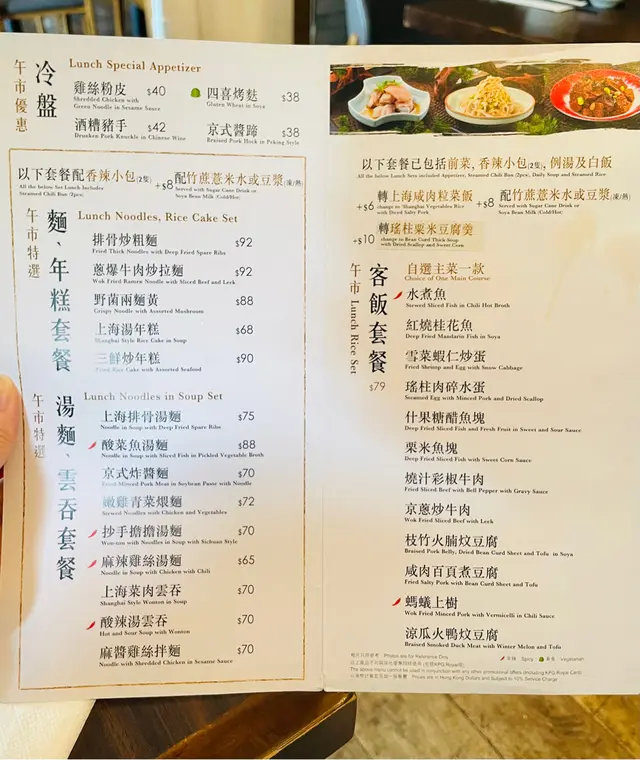 午市優惠
冷盤
Lunch Special Appetizer
雞絲粉皮 $40
Shredded Chicken with
Green Noodle in Sesame Sauce
四喜烤麩 $38
Gluten Wheat in Soya
酒糟豬手 $42
Drunken Pork Knuckle in Chinese Wine
京式醬蹄 $38
Braised Pork Hock in Peking Style
以下套餐配香辣小包(2隻)
All the below Set Lunch Includes
Steamed Chili Bun (2pcs)
+$8 配竹蔗薏米水或豆漿(凍/熱)
Served with Sugar Cane Drink or
Soya Bean Milk (Cold/Hot)
午市特選
麵、年糕套餐
Lunch Noodles, Rice Cake Set
排骨炒粗麵 $92
Fried Thick Noodles with Deep Fried Spare Ribs
蔥爆牛肉炒拉麵 $92
Wok Fried Ramen Noodle with Sliced Beef and Leek
野菌兩麵黃 $88
Crispy Noodle with Assorted Mushroom
上海湯年糕 $68
Shanghai Style Rice Cake in Soup
三鮮炒年糕 $90
Fried Rice Cake with Assorted Seafood
午市特選
湯麵、雲吞套餐
Lunch Noodles in Soup Set
上海排骨湯麵 $75
Noodle in Soup with Deep Fried Spare Ribs
酸菜魚湯麵 $88
Noodle in Soup with Sliced Fish in Pickled Vegetable Broth
京式炸醬麵 $70
Fried Minced Pork Meat in Soybean Paste with Noodle
嫩雞青菜煨麵 $72
Stewed Noodles with Chicken and Vegetables
抄手擔擔湯麵 $70
Won-ton with Noodles in Soup with Sichuan Style
麻辣雞絲湯麵 $65
Noodle in Soup with Chicken with Chili
上海菜肉雲吞 $70
Shanghai Style Wonton in Soup
酸辣湯雲吞 $70
Hot and Sour Soup with Wonton
麻醬雞絲拌麵 $70
Noodle with Shredded Chicken in Sesame Sauce
以下套餐已包括前菜, 香辣小包(2隻), 例湯及白飯
All the below Lunch Sets included Appetizer, Steamed Chili Bun (2pcs), Daily Soup and Steamed Rice
+$6 轉上海咸肉粒菜飯
change to Shanghai Vegetables Rice
with Diced Salty Pork
+$8 配竹蔗薏米水或豆漿(凍/熱)
Served with Sugar Cane Drink or
Soya Bean Milk (Cold/Hot)
+$10 轉瑤柱粟米豆腐羹
change to Bean Curd Thick Soup
with Dried Scallop and Sweet Corn
客飯套餐
午市 Lunch Rice Set
$79
自選主菜一款
Choice of One Main Course
水煮魚
Stewed Sliced Fish in Chili Hot Broth
紅燒桂花魚
Deep Fried Mandarin Fish in Soya
雪菜蝦仁炒蛋
Fried Shrimp and Egg with Snow Cabbage
瑤柱肉碎水蛋
Steamed Egg with Minced Pork and Dried Scallop
什果糖醋魚塊
Deep Fried Sliced Fish and Fresh Fruit in Sweet and Sour Sauce
粟米魚塊
Deep Fried Sliced Fish with Sweet Corn Sauce
燒汁彩椒牛肉
Fried Sliced Beef with Bell Pepper with Gravy Sauce
京蔥炒牛肉
Wok Fried Sliced Beef with Leek
枝竹火腩炆豆腐
Braised Pork Belly, Dried Bean Curd Sheet and Tofu in Soya
咸肉百頁煮豆腐
Fried Salty Pork with Bean Curd Sheet and Tofu
螞蟻上樹
Wok Fried Minced Pork with Vermicelli in Chili Sauce
涼瓜火鴨炆豆腐
Braised Smoked Duck Meat with Winter Melon and Tofu
相片只供參考 Photos are for Reference Only
辛辣 Spicy 素食 Vegetarian
The above menu cannot be used in conjunction with any other promotional offers
Prices are in Hong Kong Dollars and Subject to 10% Service Charge